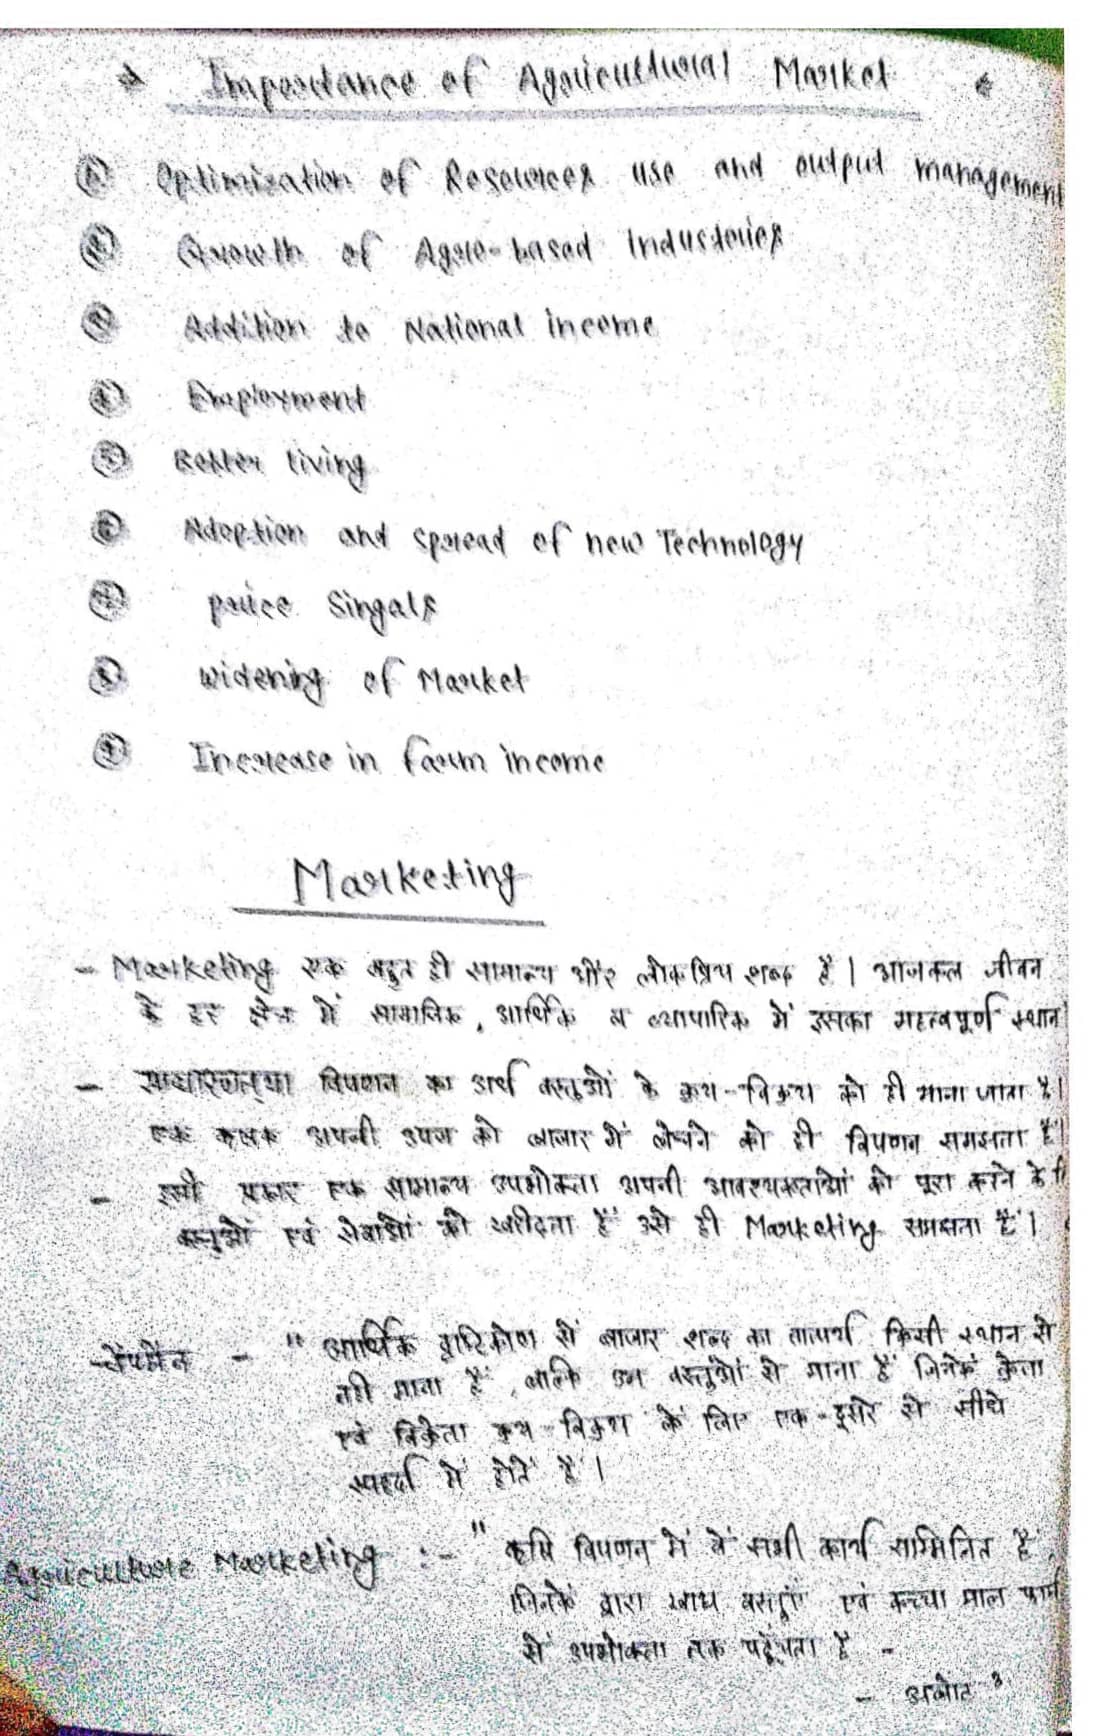 Importance of Agricultural Market
① Optimization of Resources use and output management
② Growth of Agro-based Industries
③ Addition to National income
④ Employment
⑤ Better living
⑥ Adoption and spread of new Technology
⑦ price Singals
⑧ widening of Market
⑨ Increase in farm income
Marketing
- Marketing एक बहुत ही सामान्य और लोकप्रिय शब्द है। आजकल जीवन
के हर क्षेत्र में सामाजिक, आर्थिक व व्यापारिक में इसका महत्वपूर्ण स्थान
- साधारणतया विपणन का अर्थ वस्तुओं के क्रय-विक्रय को ही माना जाता है।
एक कृषक अपनी उपज को बाजार में बेचने को ही विपणन समझता है।
- इसी प्रकार एक सामान्य उपभोक्ता अपनी आवश्यकताओं को पूरा करने के
वस्तुओं एवं सेवाओं को खरीदता हैं उसे ही Marketing समझता हैं।
- " आर्थिक दृष्टिकोण से बाजार शब्द का तात्पर्य किसी स्थान से
नही माना हैं, बल्कि उन वस्तुओं से माना हैं जिनके क्रेता
एवं विक्रेता क्रय-विक्रय के लिए एक-दूसरे से सीधे
स्पर्द्धा में होते हैं।
Agriculture Marketing :- " कृषि विपणन में वे सभी कार्य सम्मिलित हैं,
जिनके द्वारा खाद्य वस्तुएँ एवं कच्चा माल फार्म
से उपभोक्ता तक पहुंचता है -